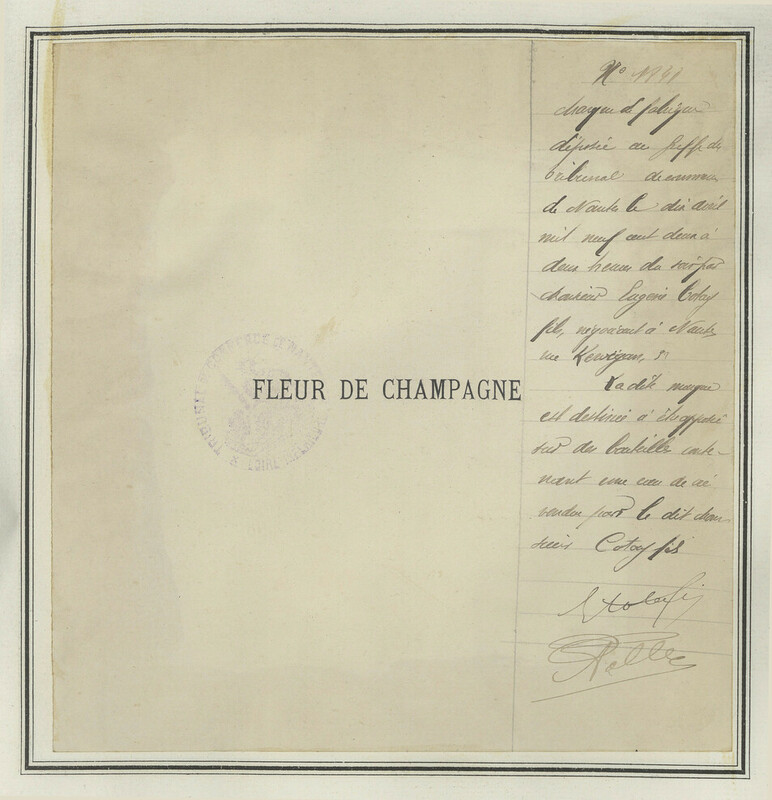 FLEUR DE CHAMPAGNE
TRIBUNAL DE COMMERCE DE NANTES
LOIRE-INFÉRIEURE
No
Marque de fabrique
déposée au Greffe du
Tribunal de commerce
de Nantes le dix avril
mil neuf cent deux à
deux heures du soir par
Monsieur Eugène
fils, négociant à Nantes
rue Kervégan,
La dite marque
est destinée à être apposée
sur des bouteilles conte-
nant une eau de vie
vendue par le dit Mon-
sieur fils